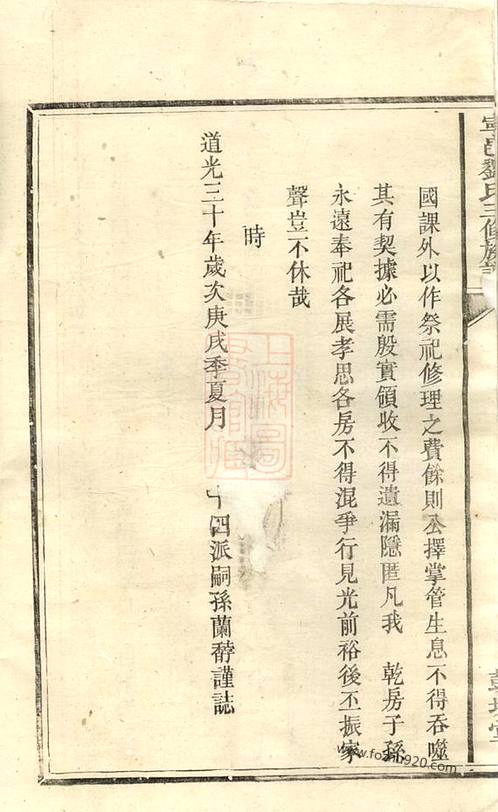 寧邑劉氏三修族譜
國課外以作祭祀修理之費餘則公擇掌管生息不得吞噬
其有契據必需殷實領收不得遺漏隱匿凡我 乾房子孫
永遠奉祀各展孝思各房不得混爭行見光前裕後丕振家
聲豈不休哉
時
道光三十年歲次庚戌季夏月 十四派嗣孫蘭馞謹誌
上海圖書館藏